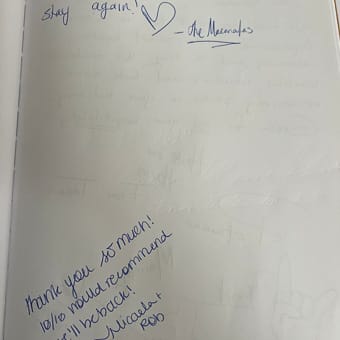 stay again!
- The
Thank you so much!
10/10 would recommend
we'll be back!
Micaela +
Rob